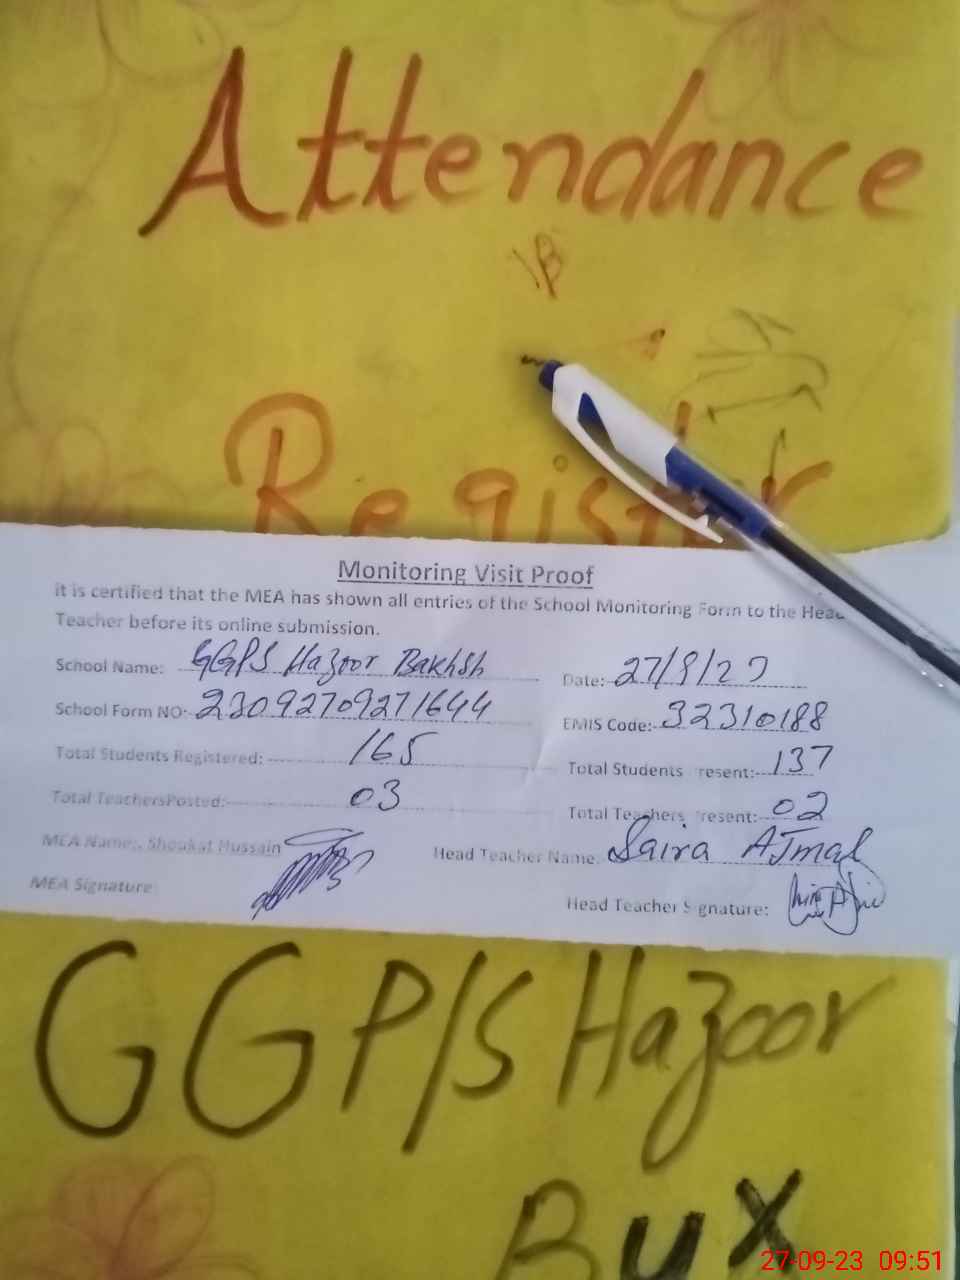 Attendance
Register
Monitoring Visit Proof
It is certified that the MEA has shown all entries of the School Monitoring Form to the Head
Teacher before its online submission.
School Name: GGPS Hazoor Bakhsh Date: 27/9/23
School Form NO: 23092709271644 EMIS Code: 32310188
Total Students Registered: 165 Total Students Present: 137
Total TeachersPosted: 03 Total Teachers Present: 02
MEA Name:. Shoukat Hussain Head Teacher Name: Saira AJmal
MEA Signature: Head Teacher Signature:
GGP/S Hazoor
Bux
27-09-23 09:51